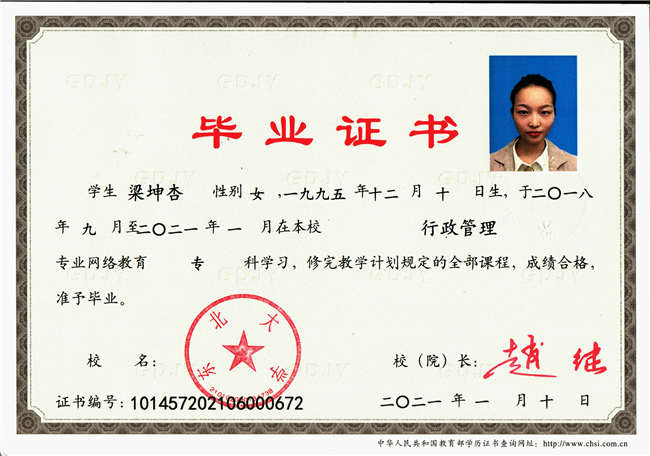 毕业证书
学生 梁坤杏 性别 女 ,一九九五 年 十二 月 十 日生，于二〇一八
年 九 月至二〇二一 年 一 月在本校 行政管理
专业网络教育 专 科学习，修完教学计划规定的全部课程，成绩合格，
准予毕业。
东北大学
校 名： 校（院）长： 赵继
证书编号：101457202106000672 二〇二一 年 一 月 十 日
中华人民共和国教育部学历证书查询网址：http://www.chsi.com.cn